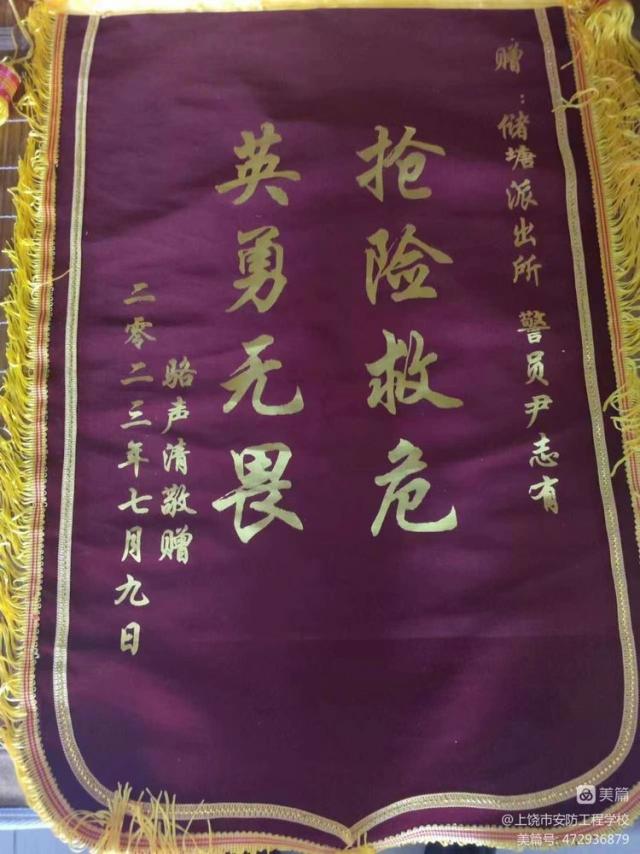 赠：储塘派出所 警员尹志有
抢险救危
英勇无畏
骆声清敬赠
二零二三年七月九日
美篇
@上饶市安防工程学校
美篇号: 472936879